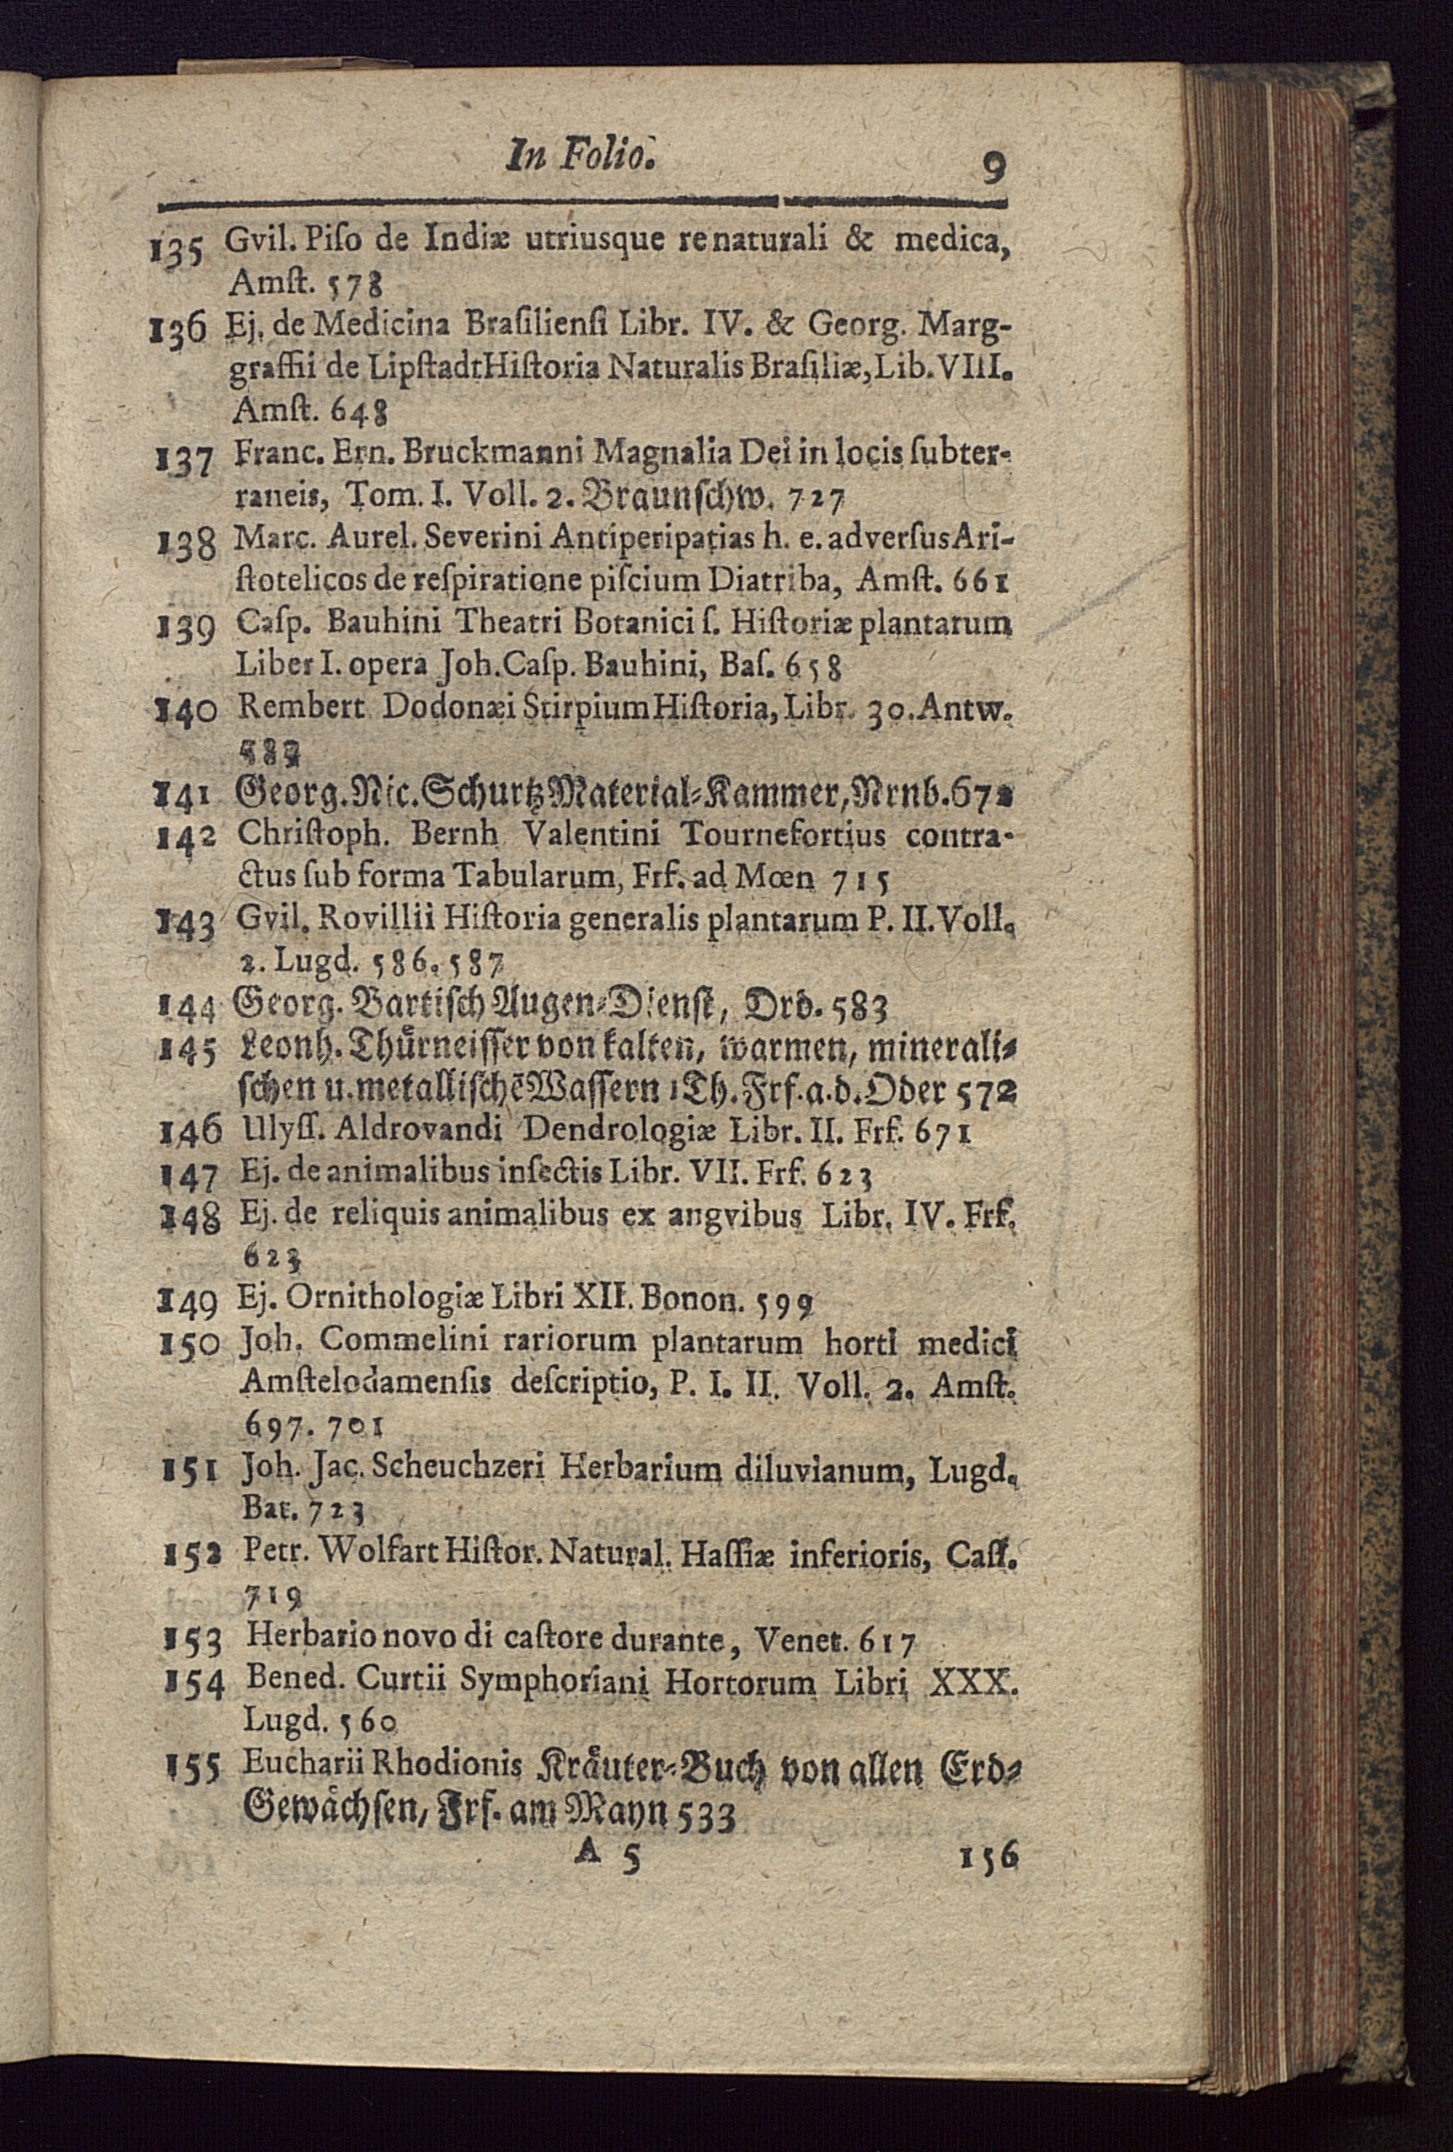 In Folio. 9
135 Gvil. Piſo de Indiæ utriusque re naturali & medica,
Amſt. 578
136 Ej. de Medicina Braſilienſi Libr. IV. & Georg. Marg-
graffii de Lipſtadt Hiſtoria Naturalis Braſiliæ, Lib. VIII.
Amſt. 648
137 Franc. Ern. Bruckmanni Magnalia Dei in locis ſubter-
raneis, Tom. I. Voll. 2. Braunſchw. 727
138 Marc. Aurel. Severini Antiperipatias h. e. adverſus Ari-
ſtotelicos de reſpiratione piſcium Diatriba, Amſt. 661
139 Caſp. Bauhini Theatri Botanici ſ. Hiſtoriæ plantarum
Liber I. opera Joh. Caſp. Bauhini, Baſ. 658
140 Rembert Dodonæi Stirpium Hiſtoria, Libr. 30. Antw.
141 Georg. Nic. Schurtz Material-Kammer, Nrnb. 672
142 Chriſtoph. Bernh Valentini Tournefortius contra-
ctus ſub forma Tabularum, Frf. ad Mœn 715
143 Gvil. Rovillii Hiſtoria generalis plantarum P. II. Voll.
2. Lugd. 586. 587
144 Georg. Bartiſch Augen-Dienſt, Drd. 583
145 Leonh. Thürneiſſer von kalten, warmen, minerali-
ſchen u. metalliſchē Waſſern 1 Th. Frf. a. d. Oder 572
146 Ulyſſ. Aldrovandi Dendrologiæ Libr. II. Frf. 671
147 Ej. de animalibus inſectis Libr. VII. Frf. 623
148 Ej. de reliquis animalibus ex angvibus Libr. IV. Frf.
623
149 Ej. Ornithologiæ Libri XII. Bonon. 599
150 Joh. Commelini rariorum plantarum horti medici
Amſtelodamenſis deſcriptio, P. I. II. Voll. 2. Amſt.
697. 701
151 Joh. Jac. Scheuchzeri Herbarium diluvianum, Lugd.
Bat. 723
152 Petr. Wolfart Hiſtor. Natural. Haſſiæ inferioris, Caſſ.
719
153 Herbario novo di caſtore durante, Venet. 617
154 Bened. Curtii Symphoriani Hortorum Libri XXX.
Lugd. 560
155 Eucharii Rhodionis Kräuter-Buch von allen Erd-
Gewächſen, Frf. am Mayn 533
A 5 156